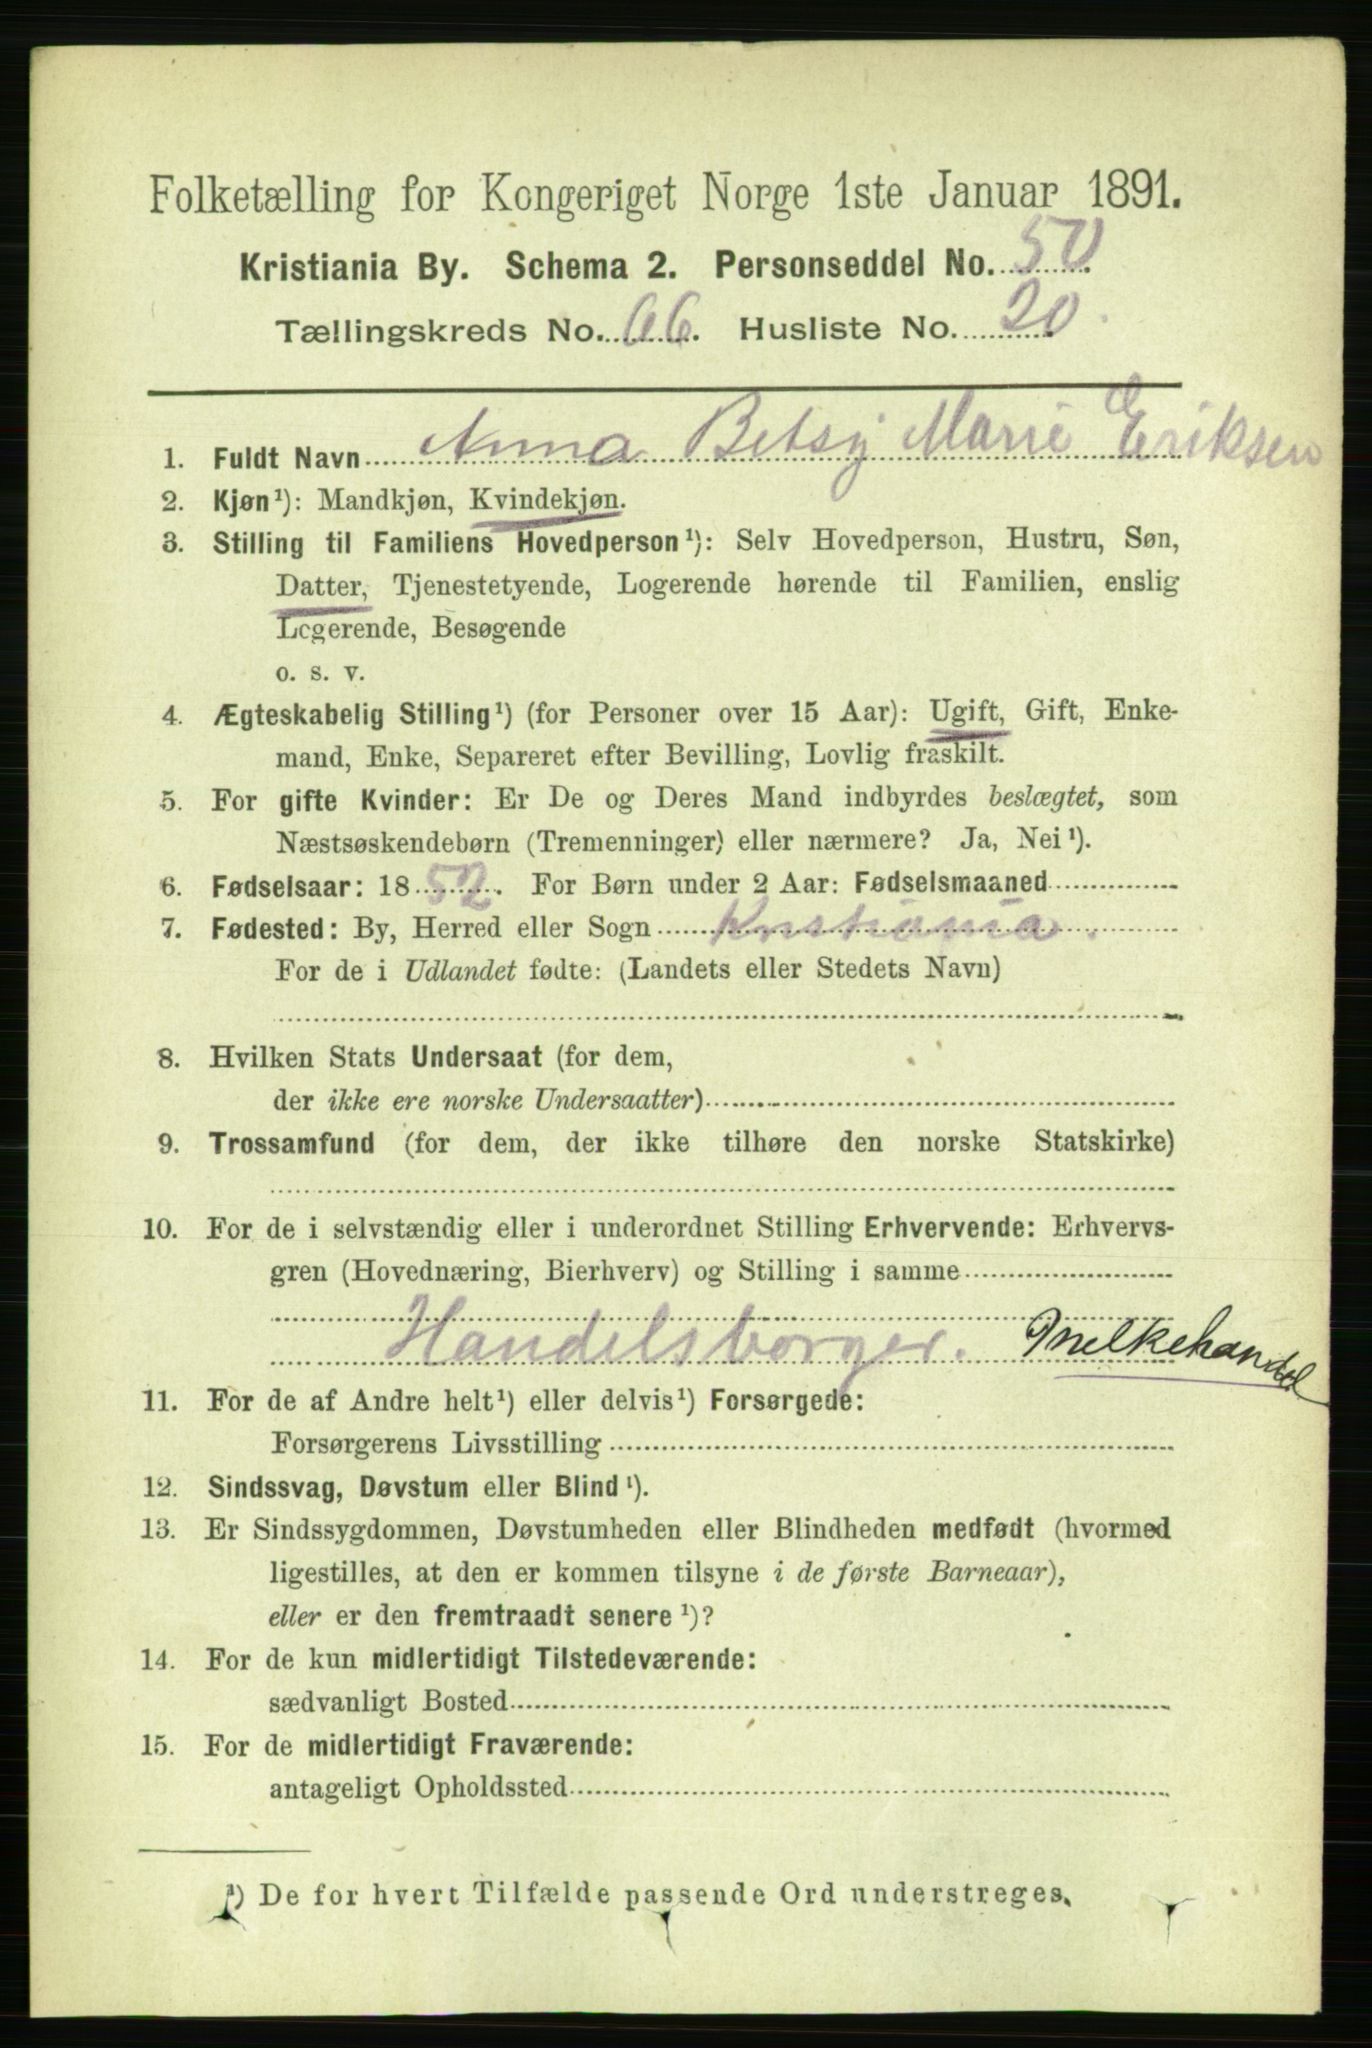 Folketælling for Kongeriget Norge 1ste Januar 1891.
Kristiania By. Schema 2. Personseddel No. 50
Tællingskreds No. 66. Husliste No. 20
1. Fuldt Navn Anna Betsy Marie Eriksen
2. Kjøn¹): Mandkjøn, Kvindekjøn.
3. Stilling til Familiens Hovedperson¹): Selv Hovedperson, Hustru, Søn,
Datter, Tjenestetyende, Logerende hørende til Familien, enslig
Logerende, Besøgende
o. s. v.
4. Ægteskabelig Stilling¹) (for Personer over 15 Aar): Ugift, Gift, Enke-
mand, Enke, Separeret efter Bevilling, Lovlig fraskilt.
5. For gifte Kvinder: Er De og Deres Mand indbyrdes beslægtet, som
Næstsøskendebørn (Tremenninger) eller nærmere? Ja, Nei¹).
6. Fødselsaar: 1852. For Børn under 2 Aar: Fødselsmaaned
7. Fødested: By, Herred eller Sogn Kristiania.
For de i Udlandet fødte: (Landets eller Stedets Navn)
8. Hvilken Stats Undersaat (for dem,
der ikke ere norske Undersaatter)
9. Trossamfund (for dem, der ikke tilhøre den norske Statskirke)
10. For de i selvstændig eller i underordnet Stilling Erhvervende: Erhvervs-
gren (Hovednæring, Bierhverv) og Stilling i samme
Handelsborger. Melkehandel
11. For de af Andre helt¹) eller delvis¹) Forsørgede:
Forsørgerens Livsstilling
12. Sindssvag, Døvstum eller Blind¹).
13. Er Sindssygdommen, Døvstumheden eller Blindheden medfødt (hvormed
ligestilles, at den er kommen tilsyne i de første Barneaar),
eller er den fremtraadt senere¹)?
14. For de kun midlertidigt Tilstedeværende:
sædvanligt Bosted
15. For de midlertidigt Fraværende:
antageligt Opholdssted
¹) De for hvert Tilfælde passende Ord understreges.